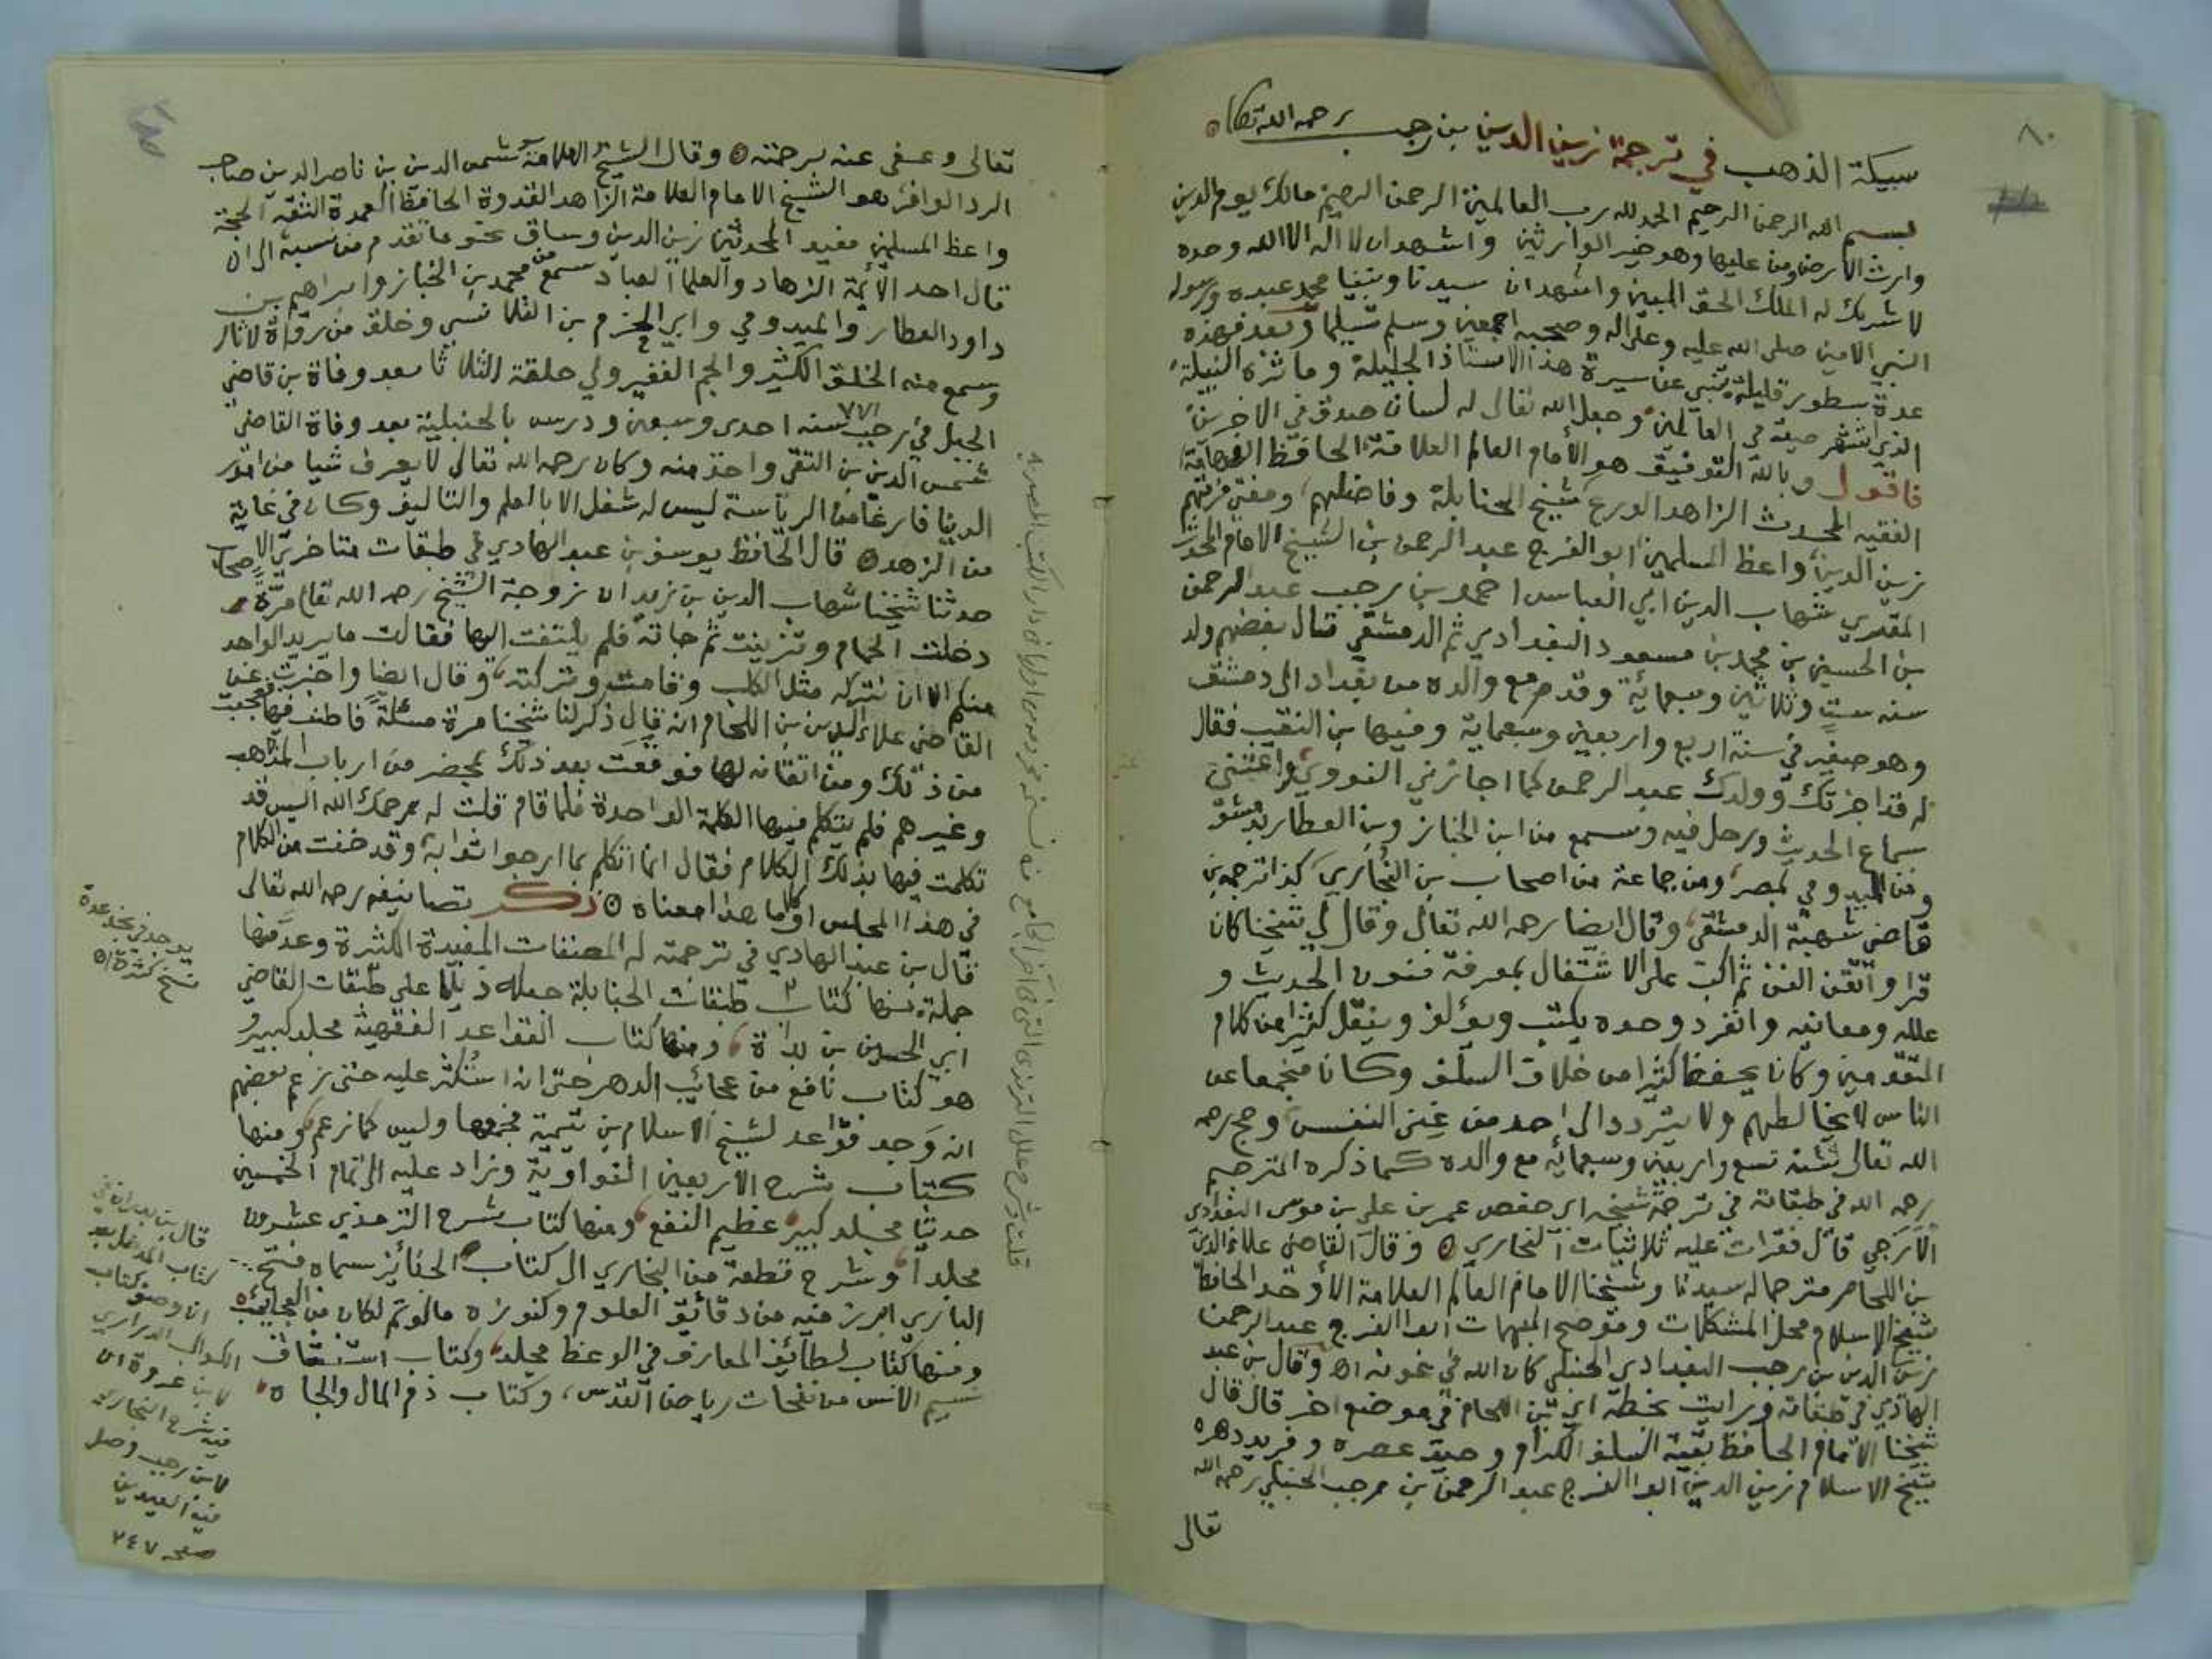 ٨٠
سبيكة الذهب في ترجمة زين الدين بن رجب رحمه الله تعالى
بسم الله الرحمن الرحيم الحمد لله رب العالمين الرحمن الرحيم مالك يوم الدين
وارث الارض ومن عليها وهو خير الوارثين واشهد ان لا اله الا الله وحده
لا شريك له الملك الحق المبين واشهد ان سيدنا ونبينا محمد عبده ورسوله
النبي الامين صلى الله عليه وعلى اله وصحبه اجمعين وسلم تسليما وبعد فهذه
عدة سطور قليلة تنبي عن سيرة هذا الاستاذ الجليلة وماثره النبيلة
الذي انتشر صيته في العالمين وجعل الله تعالى له لسان صدق في الاخرين
فاقول وبالله التوفيق هو الامام العالم العلامة الحافظ الفهامة
الفقيه المحدث الزاهد الورع شيخ الحنابلة وفاضلهم ومفتي فرقتهم
زين الدين واعظ المسلمين ابو الفرج عبد الرحمن بن الشيخ الامام المحدث
المقري شهاب الدين ابي العباس احمد بن رجب عبد الرحمن
بن الحسين بن محمد بن مسعود البغدادي ثم الدمشقي قال بعضهم ولد
سنه ست وثلاثين وسبمائة وقدم مع والده من بغداد الى دمشق
وهو صغير في سنة اربع واربعين وسبعماية وفيها بن النقيب فقال
له قد اجزتك وولدك عبد الرحمن كما اجازني النووي واعتنى
سماع الحديث ورحل فيه وسمع من ابن الخباز وبن العطار بدمشق
ومن الميدومي بمصر ومن جماعة من اصحاب بن البخاري كذا ترجمه بن
قاضي شهبة الدمشقي وقال ايضا رحمه الله تعالى وقال لي شيخنا كان
قرا واتقن الفن ثم اكب على الاشتغال بمعرفة فنون الحديث و
علله ومعانيه وانفرد وحده يكتب ويؤلف وينقل كثيرا من كلام
المتقدمين وكان يحفظ كثيرا من خلاف السلف وكان منجمعا عن
الناس لا يخالطهم ولا يتردد الى احد من غنى النفس وحج رحمه
الله تعالى سنة تسع واربعين وسبمائه مع والده كما ذكره المترجم
رحمه الله في طبقاته في ترجمة شيخه ابي حفص عمر بن علي بن موسى البغدادي
الازجي قال فقرات عليه ثلاثيات البخاري وقال القاضي علاء الدين
بن اللحام مترجما له سيدنا وشيخنا الامام العالم العلامة الاوحد الحافظ
شيخ الاسلام ومحل المشكلات وموضح المبهمات ابوا الفرج عبد الرحمن
زين الدين بن رجب البغدادي الحنبلي كان الله في عونه اه وقال بن عبد
الهادي في طبقاته ورايت بخطه ابي بن اللحام في موضع اخر قال قال
شيخنا الامام الحافظ بقية السلف الكرام وحيد عصره وفريد دهره
شيخ الاسلام زين الدين ابوا الفرج عبد الرحمن بن رجب الحنبلي رحمه الله
تعالى
تعالى وعفى عنه برحمته وقال الشيخ العلامة شمس الدين بن ناصر الدين صاحب
الرد الوافر هو الشيخ الامام العلامة الزاهد القدوة الحافظ العمدة الثقة الحجة
واعظ المسلمين مفيد المحدثين زين الدين وساق نحو ما تقدم من نسبه الى ان
قال احد الائمة الزهاد والعلما العباد سمع من محمد بن الخباز وابراهيم بن
داود العطار والميدومي وابي الحزم بن القلانسي وخلق من رواة الاثار
وسمع منه الخلق الكثير والجم الغفير ولي حلقة الثلاثا بعد وفاة بن قاضي
الجبل في رجب سنه احدى وسبعين ودرس بالحنبلية بعد وفاة القاضي
٧٧١
شمس الدين بن التقي واخذ منه وكان رحمه الله تعالى لا يعرف شيا من امور
الدنيا فارغا من الرياسة ليس له شغل الا بالعلم والتاليف وكان في غاية
من الزهد قال الحافظ يوسف بن عبد الهادي في طبقات متاخري الاصحاب
حدثنا شيخنا شهاب الدين بن زيد ان زوجة الشيخ رحمه الله تعالى مرة
دخلت الحمام وتزينت ثم جاته فلم يلتفت اليها فقالت ما يريد الواحد
منكم الا ان نتركه مثل الكلب وقامت وتركته وقال ايضا واخبرت عن
القاضي علاء الدين بن اللحام انه قال ذكر لنا شيخنا مرة مسئلة فاطنب فيها فعجبت
من ذلك ومن اتقانه لها فوقعت بعد ذلك بمحضر من ارباب المذاهب
وغيرهم فلم يتكلم فيها الكلمة الواحدة فلما قام قلت له يرحمك الله اليس قد
تكلمت فيها بذلك الكلام فقال انما اتكلم بما ارجوا ثوابه وقد خفت من الكلام
في هذا المجلس او كلاما هذا معناه ذكر تصانيفه رحمه الله تعالى
قال بن عبد الهادي في ترجمته له المصنفات المفيدة الكثيرة وعد منها
جملة منها كتاب طبقات الحنابلة جعله ذيلا على طبقات القاضي
ابي الحسين بن ومنها كتاب القواعد الفقهية مجلد كبير و
هو كتاب نافع من عجائب الدهر حتى انه استكثر عليه حتى زعم بعضهم
انه وجد قواعد لشيخ الاسلام بن تيمية فجمعها وليس كما زعم ومنها
كتاب شرح الاربعين النواوية وزاد عليه الى تمام الخمسين
حديثا مجلد كبير عظيم النفع ومنها كتاب شرح الترمذي عشرون
مجلدا وشرح قطعة من البخاري الى كتاب الجنائز سماه فتح
الباري ابرز فيه من دقائق العلوم وكنوزه ما لو تم لكان من العجائب
ومنها كتاب لطائف المعارف في الوعظ مجلد وكتاب استنشاق
نسيم الانس من نفحات رياض القدس، وكتاب ذم المال والجاه
يوجد في نجد عدة
نسخ كثيرة اه
قال بن بدران في
كتاب المدخل بعد
كتاب
الكواكب الدراري
لابن عروة ان
فيه شرح البخاري
لابن رجب وصل
فيه العيدين
صفحه ٢٤٧